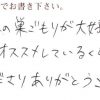 でお書き下さい。
の巣ごもりが大好
オススメしているくら
だすりありがとうこ